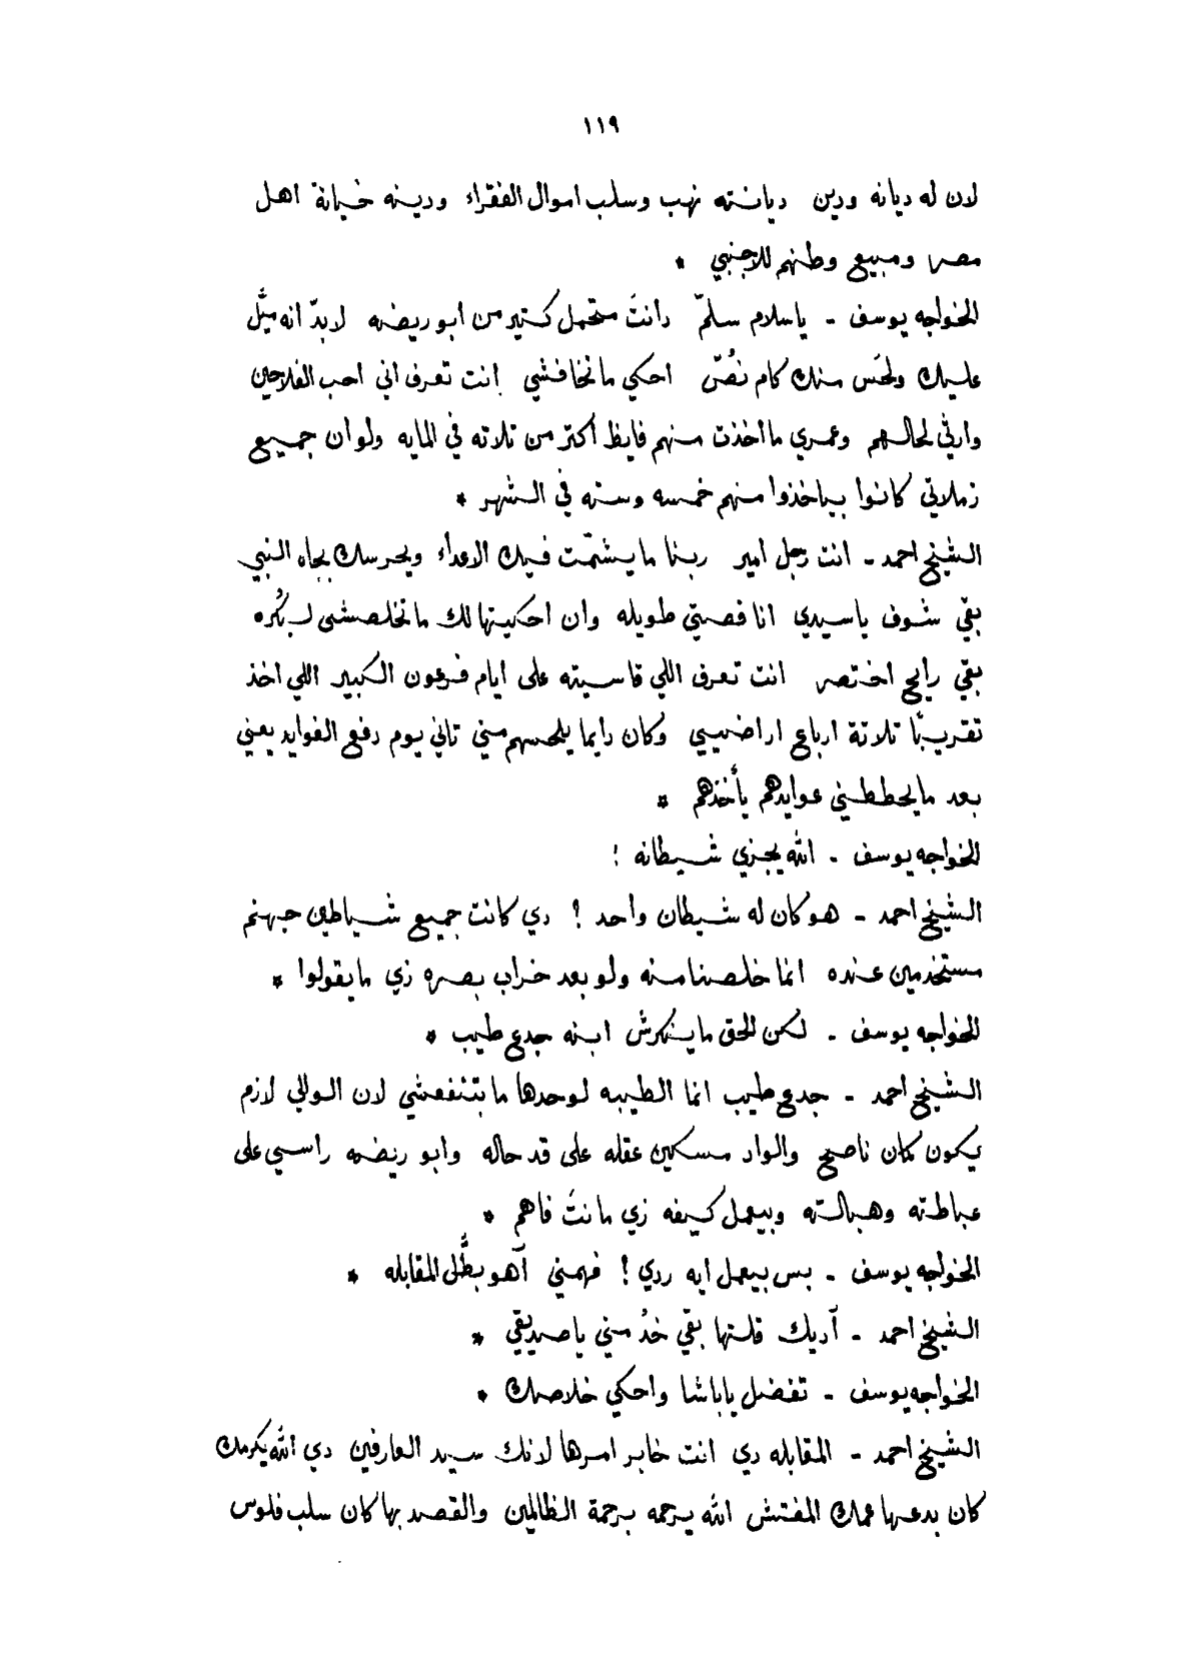 ١١٩
لان له ديانه ودين ديانته نهب وسلب اموال الفقراء ودينه خيانة اهل
مصر ومبيع وطنهم للاجنبي *
الخواجه يوسف - ياسلام سلمّ دانتَ متحمل كتير من ابو ريضه لابدّ انه ميَّل
عليك ولحَس منك كام نُصّ احكي ماتخافشي انت تعرف اني احب الفلاحين
وارثي لحالهم وعمري مااخذت منهم فايظ أكتر من تلاته في المايه ولو ان جميع
زملاتي كانوا بياخذوا منهم خمسه وسته في الشهر *
الشيخ احمد - انت رجل امير ربنا ما يشمّت فيك الاعداء ويحرسك بجاه النبي
بقي شوف ياسيدي انا قصتي طويله وان احكيتها لك ماتخلصشي لبُكره
بقي رايح اختصر انت تعرف اللي قاسيته على ايام فرعون الكبير اللي اخذ
تقريبًا تلاتة ارباع اراضيي وكان دايما يلحسهم مني تاني يوم دفع الفوايد يعني
بعد مايحططني عوايدهم يأخذهم *
الخواجه يوسف - الله يجزي شيطانه !
الشيخ احمد - هو كان له شيطان واحد ! دي كانت جميع شياطين جهنم
مستخدمين عنده انما خلصنا منه ولو بعد خراب بصره زي مايقولوا *
الخواجه يوسف - لكن الحق ماينكرش ابنه جدع طيب *
الشيخ احمد - جدع طيب انما الطيبه لوحدها مابتنفعشي لان الوالي لازم
يكون كمان ناصح والواد مسكين عقله على قد حاله وابو ريضه راسي على
عباطته وهبالته وبيعمل كيفه زي ما نتَ فاهم *
الخواجه يوسف - بس بيعمل ايه ردي ! فهمني آهو بطَّل المقابله *
الشيخ احمد - آديك قلتها بقي خدُ مني ياصديقي *
الخواجه يوسف - تفضل ياباشا واحكي خلاصك *
الشيخ احمد - المقابله دي انت خابر امرها لانك سيد العارفين دي الله يكرمك
كان بدعها عمك المفتش الله يرحمه برحمة الظالمين والقصد بها كان سلب فلوس